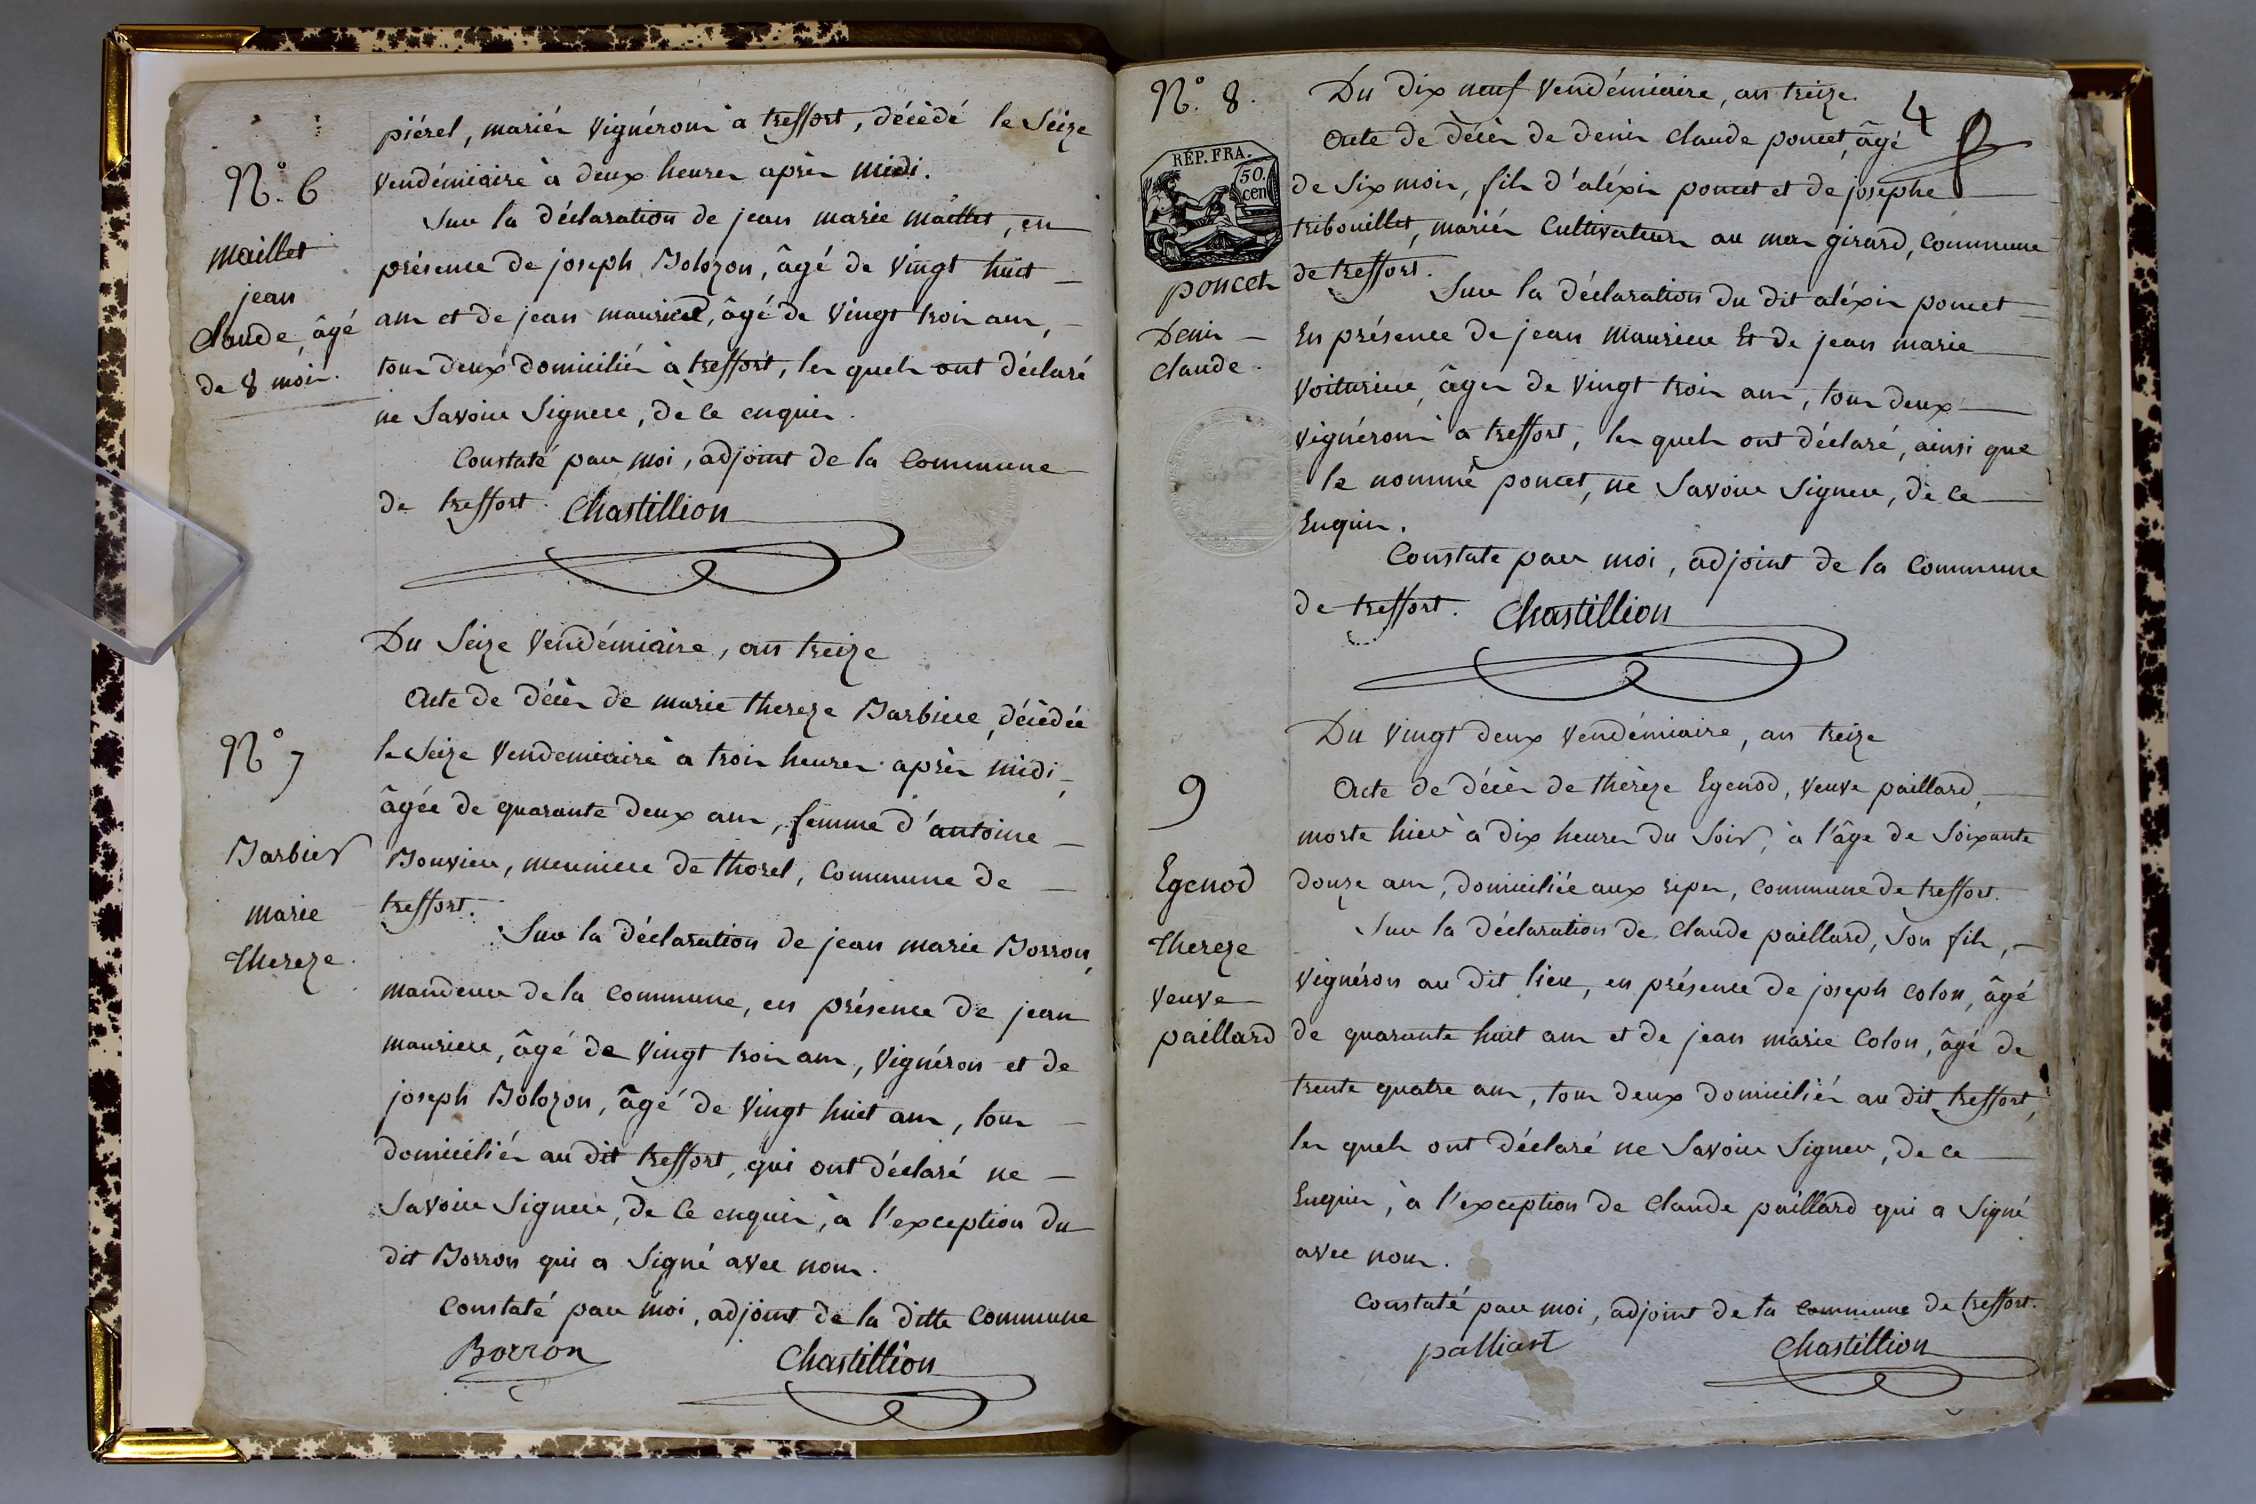 piérel, mariés vignérons à treffort, décédé le Seize
N.° 6
vendémiaire à deux heures après midi.
maillet
jean
Claude, âgé
de 8 mois.
Sur la déclaration de jean marie maillet, en
présence de joseph Bolozon, âgé de vingt huit
ans et de jean maurier, âgé de vingt trois ans,
tous deux domiciliés à treffort, les quels ont déclaré
ne Savoir Signer, de ce enquis.
Constaté par moi, adjoint de la Commune
de treffort. Chastillion
Du Seize Vendémiaire, an treize
Acte de décès de marie thereze Barbier, décédée
N° 7
le Seize Vendemiaire à trois heures après midi,
âgée de quarante deux ans, femme d'antoine
Barbier
marie
Thereze.
Bouvier, meunier de thorel, Commune de
treffort.
Sur la déclaration de jean marie Borron,
mandeur de la Commune, en présence de jean
maurier, âgé de vingt trois ans, vignéron et de
joseph Bolozon, âgé de vingt huit ans, tous
domiciliés au dit treffort, qui ont déclaré ne
Savoir Signer, de ce enquis, à l'exception du
dit Borron qui a Signé avec nous.
Constaté par moi, adjoint de la ditte Commune
Borron Chastillion
N.° 8.
Du dix neuf Vendémiaire, an treize.
4
Acte de décès de denis claude poncet, âgé
RÉP. FRA.
50.
cen
de Six mois, fils d'aléxis poncet et de josephe
tribouillet, mariés Cultivateurs au mas girard, Commune
de treffort.
poncet
Denis
claude.
Sur la déclaration du dit aléxis poncet
En présence de jean Maurier Et de jean marie
Voiturier, âgés de vingt trois ans, tous deux
vignérons à treffort, les quels ont déclaré, ainsi que
le nommé poncet, ne Savoir Signer, de ce
Enquis.
Constaté par moi, adjoint de la Commune
de treffort. Chastillion
Du Vingt deux Vendémiaire, an treize
9
Acte de décès de thérèze Egenod, Veuve paillard,
morte hier à dix heures du Soir, à l'âge de Soixante
Egenod
Thereze
veuve
paillard
douze ans, domiciliée aux ripes, Commune de treffort.
Sur la déclaration de Claude paillard, Son fils,
vignéron au dit lieu, en présence de joseph colon, âgé
de quarante huit ans et de jean marie Colon, âgé de
trente quatre ans, tous deux domiciliés au dit treffort,
les quels ont déclaré ne Savoir Signer, de ce
Enquis, à l'exception de Claude paillard qui a Signé
avec nous.
Constaté par moi, adjoint de la commune de treffort.
palliart Chastillion